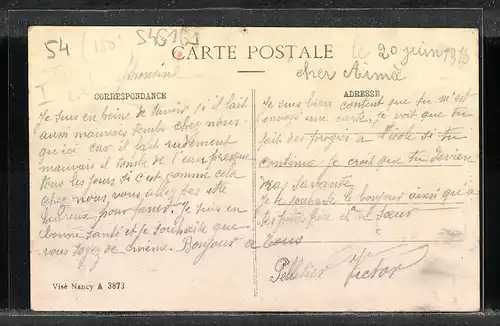 54 (150) 545161
I
CARTE POSTALE
le 20 juin 1916
cher Aimée
CORRESPONDANCE
ADRESSE
Je suis en peine de savoir si il fait
aussi mauvais temps chez nous
qu'ici car il fait rudement
mauvais il tombe de l'eau presque
tous les jours si c'est comme cela
chez nous, vous allez pas être
pour faner. Je suis en
bonne santé et je souhaite que
vous soyez de même. Bonjour a Tous
Je suis bien content que tu m'est
envoyé une carte. Je vois que tu
fait des progrès a l'école si tu
continue je crois que tu devien
dras savante
Je te souhaite le bonjour ainsi qu'a
tes père et Sœur
Pelletier Victor
Visé Nancy A 3873